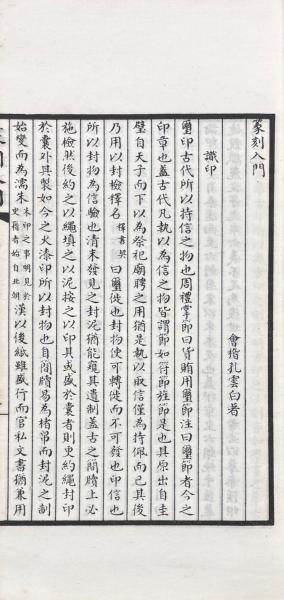 篆刻入門
會稽孔雲白著
識印
璽印古代所以持信之物也周禮掌節曰貨賄用璽節注曰璽節者今之
印章也蓋古代凡執以為信之物皆謂節如符節旌節是也其原出自圭
璧自天子而下以為祭祀廟聘之用猶是執以取信僅為持佩而已其後
乃用以封檢釋名釋書契曰璽徙也封物使可轉徙而不可發也印信也
所以封物為信驗也清末發見之封泥猶能窺其遺制蓋古之簡牘上必
施檢然後約之以繩填之以泥按之以印其或盛於囊者則更約繩封印
於囊外其製如今之火漆印所以封物也自簡牘易為楮帛而封泥之制
始變而為濡朱朱印之事明見於史籍者始自北朝漢以後紙雖盛行而官私文書猶兼用